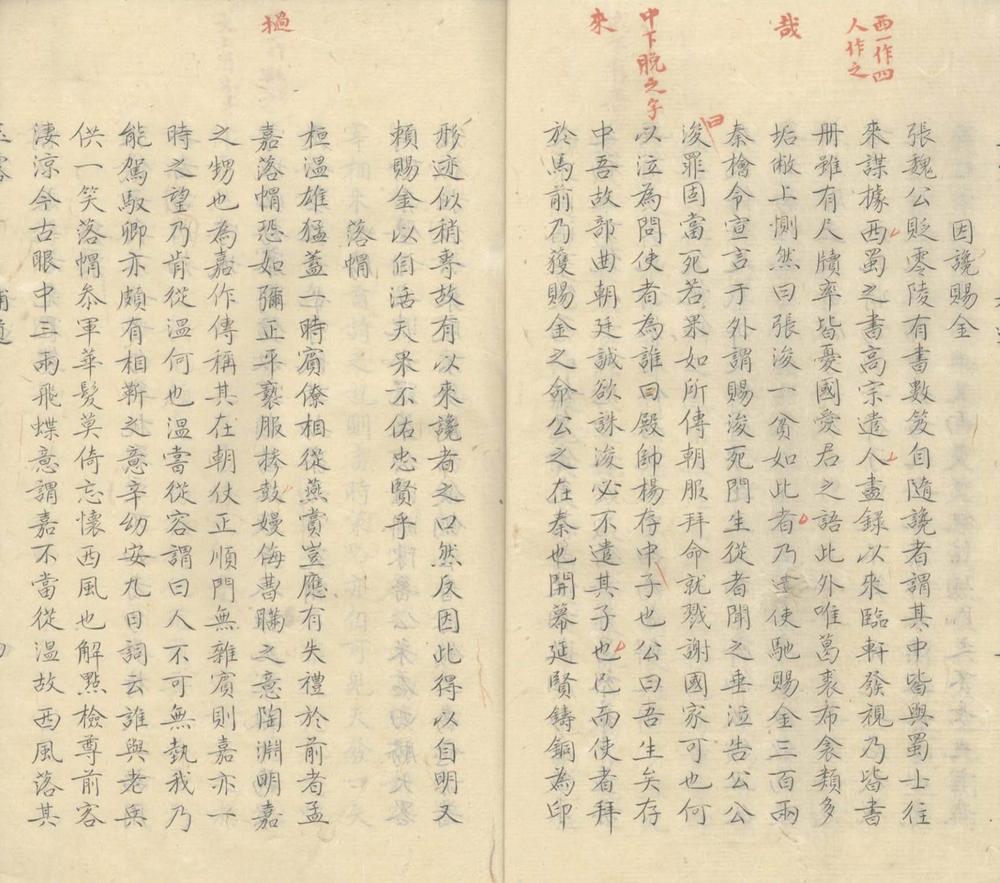 西一作四
人作之
哉
中下脫之字
來
曰
檛
因讒賜金
張魏公貶零陵有書數笈自隨讒者謂其中皆與蜀士往
來謀據西蜀之書高宗遣人盡録以來臨軒發視乃皆書
册雖有尺牘率皆憂國愛君之語此外唯葛裘布衾類多
垢敝上惻然曰張浚一貧如此者乃遣使馳賜金三百兩
秦檜令宣言于外謂賜浚死門生從者聞之垂泣告公公
浚罪固當死若果如所傳朝服拜命就戮謝國家可也何
以泣為問使者為誰曰殿帥楊存中子也公曰吾生矣存
中吾故部曲朝廷誠欲誅浚必不遣其子也已而使者拜
於馬前乃獲賜金之命公之在秦也開幕延賢鑄銅為印
形迹似稍專故有以来讒者之口然反因此得以自明又
賴賜金以自活天果不佑忠賢乎
落帽
桓温雄猛蓋一時賓僚相從燕賞豈應有失禮於前者孟
嘉落帽恐如彌正平褻服摻鼓嫚侮曹瞞之意陶淵明嘉
之甥也為嘉作傳稱其在朝仗正順門無雜賓則嘉亦一
時之望乃肯從温何也温嘗從容謂曰人不可無執我乃
能駕馭卿亦頗有相靳之意辛幼安九日詞云誰與老兵
供一笑落帽叅軍華髮莫倚忘懷西風也解點檢尊前客
淒涼今古眼中三兩飛蝶意謂嘉不當從温故西風落其